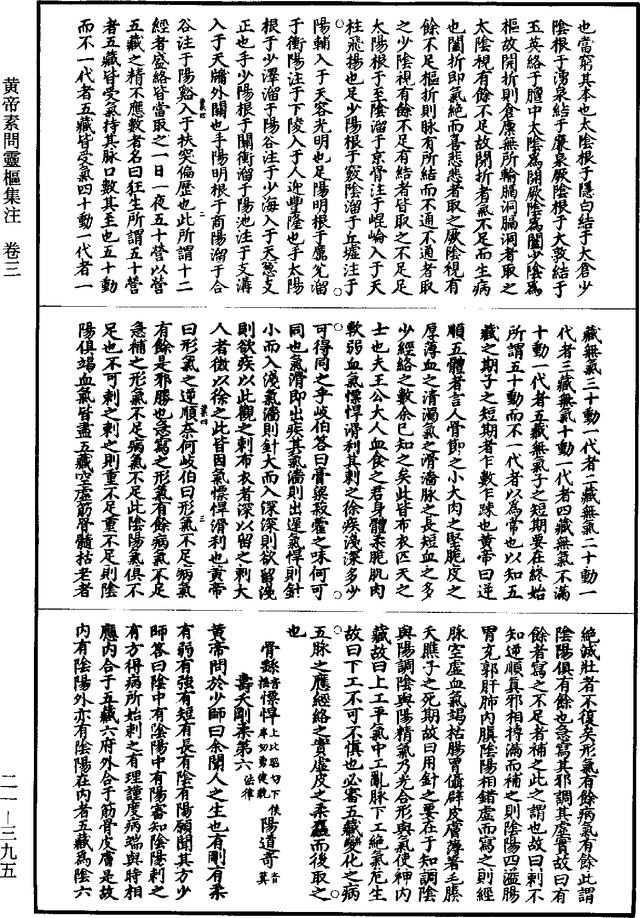 黄帝素問靈樞集注 卷三
也當窮其本也太陰根于隱白結于大倉少
陰根于湧泉結于廉泉厥陰根于大敦結于
玉英絡于膻中太陰爲開厥陰爲闔少陰爲
樞故開折則倉廩無所輸膈洞膈洞者取之
太陰視有餘不足故開折者氣不足而生病
也闔折即氣絶而喜悲悲者取之厥陰視有
餘不足樞折則脉有所結而不通不通者取
之少陰視有餘不足有結者皆取之不足足
太陽根于至陰溜于京骨注于崐崘入于天
柱飛揚也足少陽根于竅陰溜于丘墟注于
陽輔入于天容光明也足陽明根于厲兌溜
于衝陽注于下陵入于人迎豐隆也手太陽
根于少澤溜于陽谷注于少海入于天䆫支
正也手少陽根于關衝溜于陽池注于支溝
入于天牖外關也手陽明根于商陽溜于合
谷注于陽谿入于扶突偏歷也此所謂十二
經者盛絡皆當取之一日一夜五十營以營
五藏之精不應數者名曰狂生所謂五十營
者五藏皆受氣持其脉口數其至也五十動
而不一代者五藏皆受氣四十動一代者一
藏無氣三十動一代者二藏無氣二十動一
代者三藏無氣十動一代者四藏無氣不滿
十動一代者五藏無氣予之短期要在終始
所謂五十動而不一代者以爲常也以知五
藏之期予之短期者乍數乍踈也黄帝曰逆
順五體者言人骨節之小大肉之堅脆皮之
厚薄血之清濁氣之滑濇脉之長短血之多
少經絡之數余已知之矣此皆布衣匹夫之
士也夫王公大人血食之君身體柔脆肌肉
軟弱血氣慓悍滑利其刺之徐疾淺深多少
可得同之乎岐伯荅曰膏粱菽藿之味何可
同也氣滑即出疾其氣濇則出遲氣悍則針
小而入淺氣濇則針大而入深深則欲留淺
則欲疾以此觀之刺布衣者深以留之刺大
人者微以徐之此皆因氣慓悍滑利也黄帝
曰形氣之逆順奈何岐伯曰形氣不足病氣
有餘是邪勝也急寫之形氣有餘病氣不足
急補之形氣不足病氣不足此陰陽氣俱不
足也不可刺之刺之則重不足重不足則陰
陽俱竭血氣皆盡五藏空虚筋骨髓枯老者
絶滅壯者不復矣形氣有餘病氣有餘此謂
陰陽俱有餘也急寫其邪調其虚實故曰有
餘者寫之不足者補之此之謂也故曰刺不
知逆順真邪相持滿而補之則陰陽四溢腸
胃充郭肝肺内䐜陰陽相錯虚而寫之則經
脉空虚血氣竭枯腸胃㒤辟皮膚薄著毛腠
夭膲予之死期故曰用針之要在于知調陰
與陽調陰與陽精氣乃光合形與氣使神内
藏故曰上工平氣中工亂脉下工絶氣危生
故曰下工不可不慎也必審五藏變化之病
五脉之應經絡之實虚皮之柔麤而後取之
也
骨繇 慓悍 陽道奇
壽夭剛柔第六 法律
黄帝問於少師曰余聞人之生也有剛有柔
有弱有強有短有長有陰有陽願聞其方少
師荅曰陰中有陰陽中有陽審知陰陽刺之
有方得病所始刺之有理謹度病端與時相
應内合于五藏六府外合于筋骨皮膚是故
内有陰陽外亦有陰陽在内者五藏爲陰六
二一—三九五